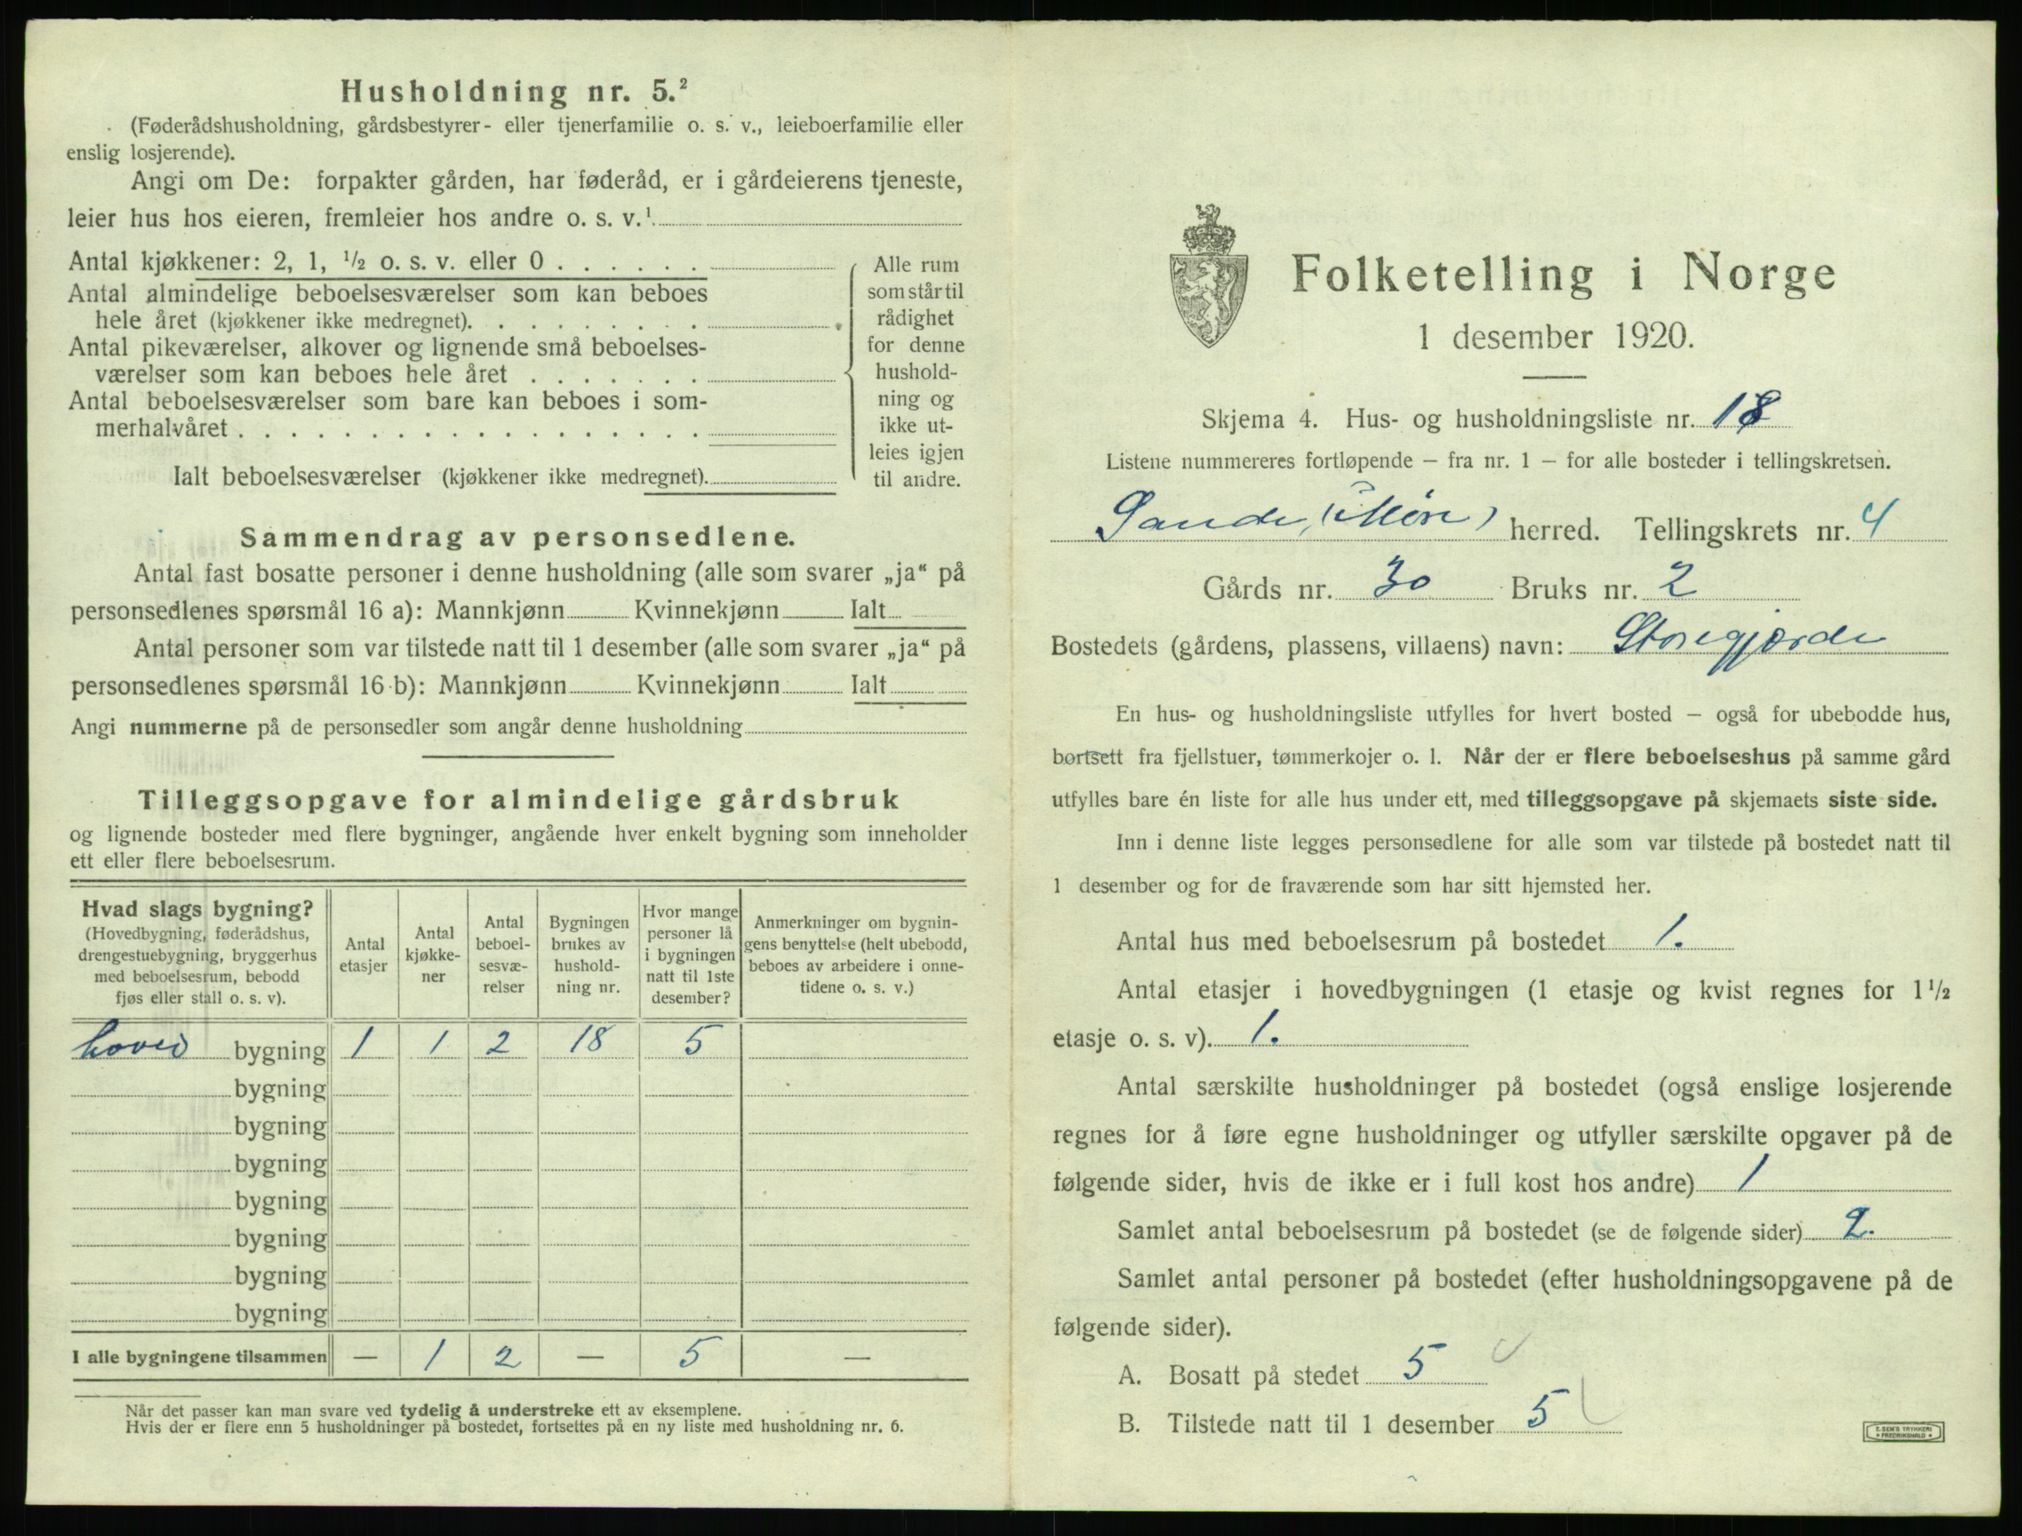 Husholdning nr. 5.²
(Føderådshusholdning, gårdsbestyrer- eller tjenerfamilie o. s. v., leieboerfamilie eller
enslig losjerende).
Angi om De: forpakter gården, har føderåd, er i gårdeierens tjeneste,
leier hus hos eieren, fremleier hos andre o. s. v.¹
Antal kjøkkener: 2, 1, ½ o. s. v. eller 0 . . . . . .
Antal almindelige beboelsesværelser som kan beboes
hele året (kjøkkener ikke medregnet). . . . . . . . .
Antal pikeværelser, alkover og lignende små beboelses-
værelser som kan beboes hele året . . . . . . .
Antal beboelsesværelser som bare kan beboes i som-
merhalvåret . . . . . . . . . . . . . . . . . .
Ialt beboelsesværelser (kjøkkener ikke medregnet).
Alle rum
som står til
rådighet
for denne
hushold-
ning og
ikke ut-
leies igjen
til andre.
Sammendrag av personsedlene.
Antal fast bosatte personer i denne husholdning (alle som svarer „ja“ på
personsedlenes spørsmål 16 a): Mannkjønn Kvinnekjønn Ialt
Antal personer som var tilstede natt til 1 desember (alle som svarer „ja“ på
personsedlenes spørsmål 16 b): Mannkjønn Kvinnekjønn Ialt
Angi nummerne på de personsedler som angår denne husholdning
Tilleggsopgave for almindelige gårdsbruk
og lignende bosteder med flere bygninger, angående hver enkelt bygning som inneholder
ett eller flere beboelsesrum.
Hvad slags bygning?
(Hovedbygning, føderådshus,
drengestuebygning, bryggerhus
med beboelsesrum, bebodd
fjøs eller stall o. s. v).
Antal
etasjer
Antal
kjøkke-
ner
Antal
beboel-
sesvæ-
relser
Bygningen
brukes av
hushold-
ning nr.
Hvor mange
personer lå
i bygningen
natt til 1ste
desember?
Anmerkninger om bygnin-
gens benyttelse (helt ubebodd,
beboes av arbeidere i onne-
tidene o. s. v.)
hoved bygning 1 1 2 18 5
bygning
bygning
bygning
bygning
bygning
bygning
bygning
I alle bygningene tilsammen — 1 2 — 5 —
Når det passer kan man svare ved tydelig å understreke ett av eksemplene.
Hvis der er flere enn 5 husholdninger på bostedet, fortsettes på en ny liste med husholdning nr. 6.
Folketelling i Norge
1 desember 1920.
Skjema 4. Hus- og husholdningsliste nr. 18
Listene nummereres fortløpende – fra nr. 1 – for alle bosteder i tellingskretsen.
Sande, (Møre) herred. Tellingskrets nr. 4
Gårds nr. 30 Bruks nr. 2
Bostedets (gårdens, plassens, villaens) navn: Storegjærde
En hus- og husholdningsliste utfylles for hvert bosted – også for ubebodde hus,
bortsett fra fjellstuer, tømmerkojer o. l. Når der er flere beboelseshus på samme gård
utfylles bare én liste for alle hus under ett, med tilleggsopgave på skjemaets siste side.
Inn i denne liste legges personsedlene for alle som var tilstede på bostedet natt til
1 desember og for de fraværende som har sitt hjemsted her.
Antal hus med beboelsesrum på bostedet 1.
Antal etasjer i hovedbygningen (1 etasje og kvist regnes for 1½
etasje o. s. v). 1.
Antal særskilte husholdninger på bostedet (også enslige losjerende
regnes for å føre egne husholdninger og utfyller særskilte opgaver på de
følgende sider, hvis de ikke er i full kost hos andre) 1
Samlet antal beboelsesrum på bostedet (se de følgende sider) 2.
Samlet antal personer på bostedet (efter husholdningsopgavene på de
følgende sider).
A. Bosatt på stedet 5
B. Tilstede natt til 1 desember 5